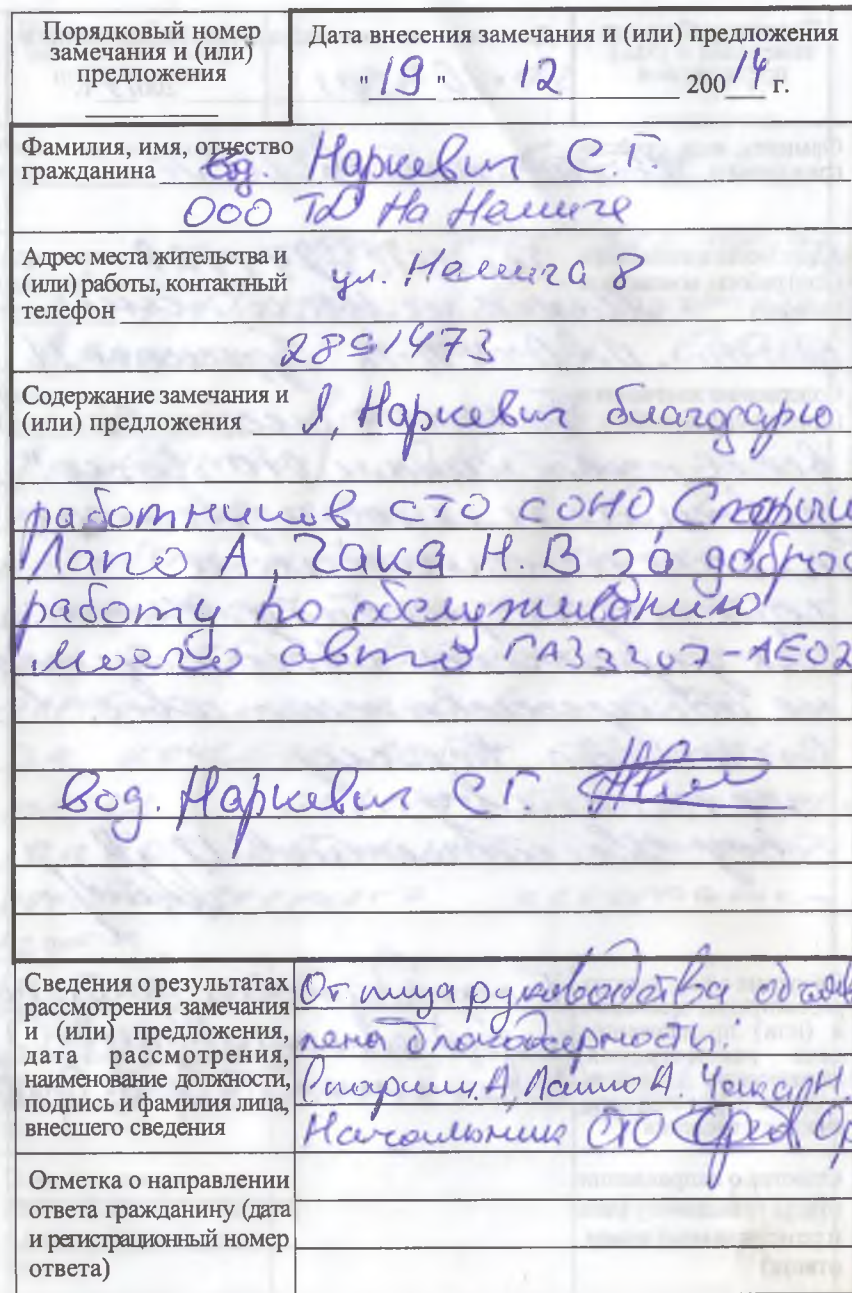 Порядковый номер
замечания и (или)
предложения
Дата внесения замечания и (или) предложения
"19" 12 20014 г.
Фамилия, имя, отчество
гражданина вод. Наркевич С.Г.
ООО ТД На Немиге
Адрес места жительства и
(или) работы, контактный
телефон ул. Немига 8
2891473
Содержание замечания и
(или) предложения Я, Наркевич благодарю
работников СТО СОНО,
Лапо А, Чака Н.В за доброс
работу по обслуживанию
моего авто ГАЗ 3307-АЕ02
Вод. Наркевич С.Г.
Сведения о результатах
рассмотрения замечания
и (или) предложения,
дата рассмотрения,
наименование должности,
подпись и фамилия лица,
внесшего сведения
От лица руководства объяв
лена благодарность:
А, Лаппо А. Чака Н.
Начальник СТО
Отметка о направлении
ответа гражданину (дата
и регистрационный номер
ответа)